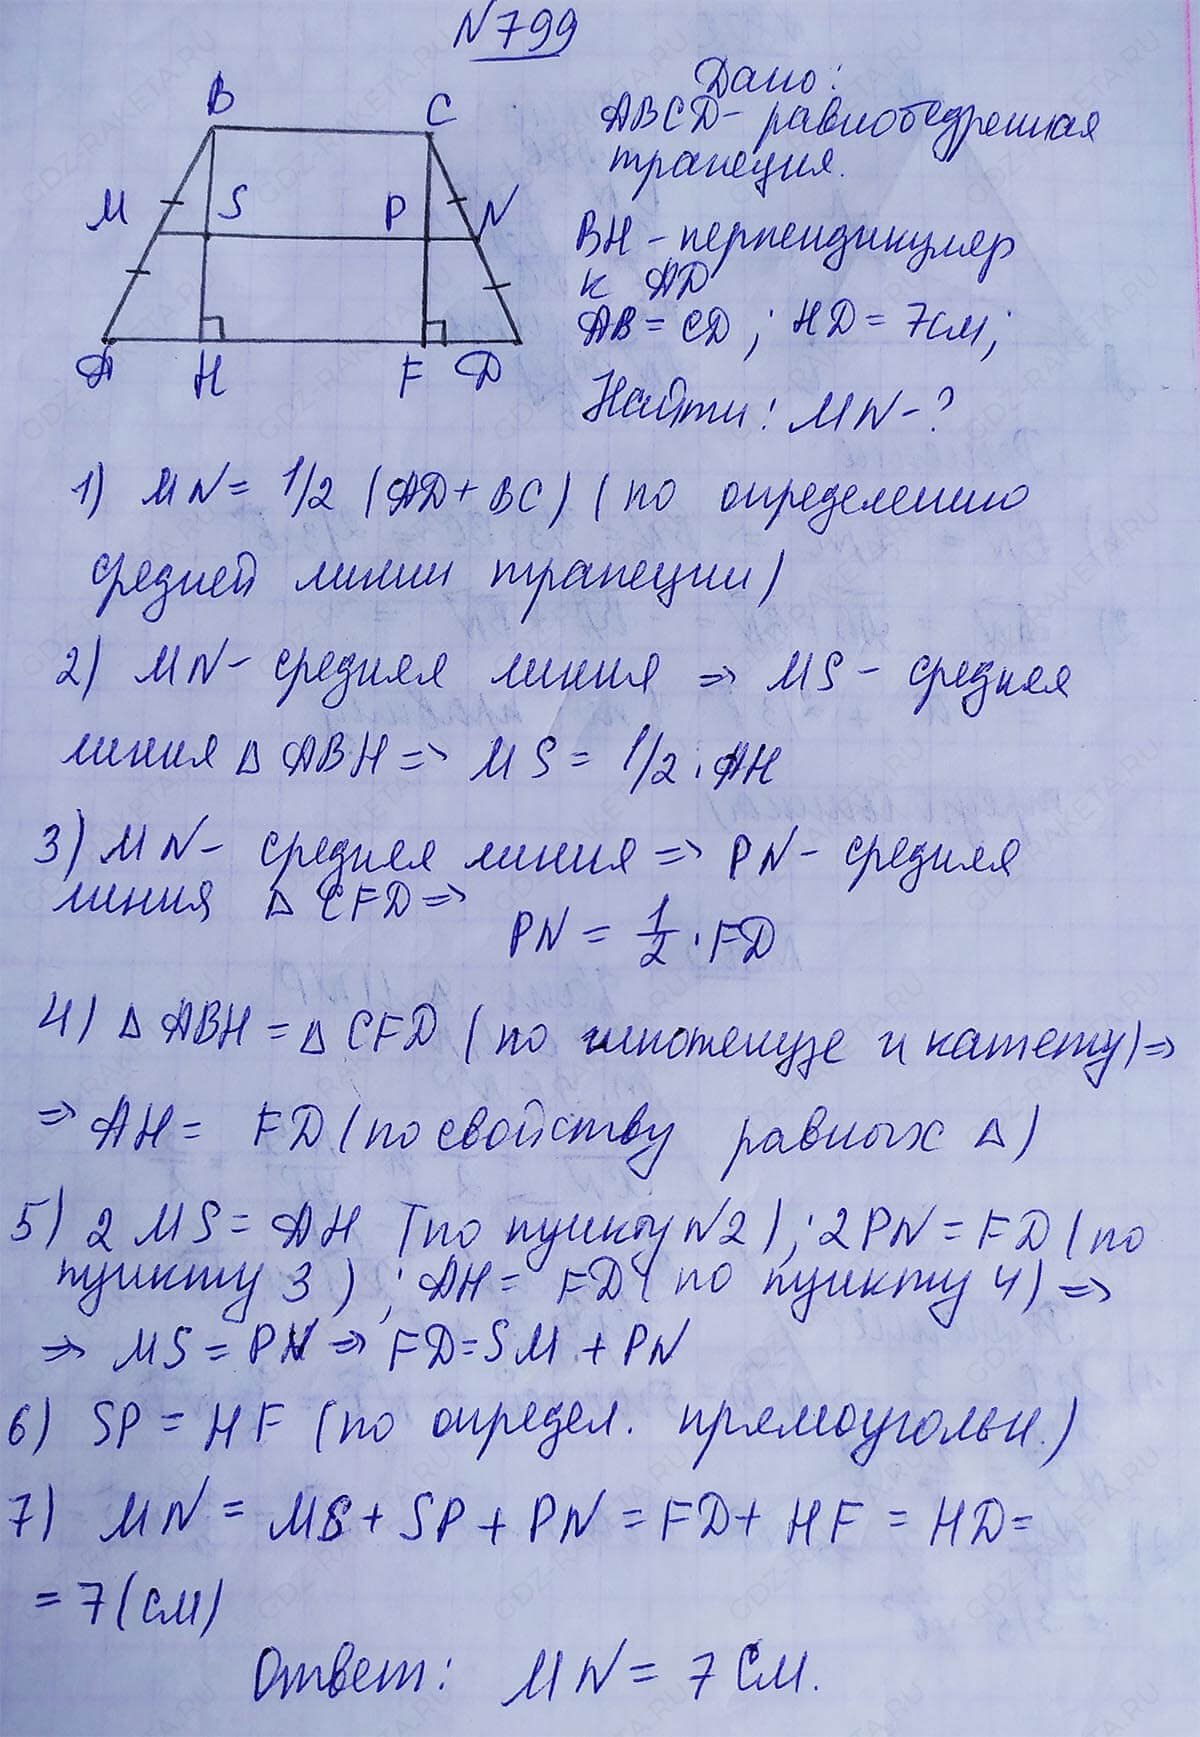 N799
B
C
Дано:
ABCD - равнобедренная
трапеция.
M
S
P
N
BH - перпендикуляр
к AD
AB = CD ; HD = 7см;
A
H
F
D
Найти: MN - ?
1) MN = 1/2 (AD + BC) (по определению
средней линии трапеции)
2) MN - средняя линия => MS - средняя
линия Δ ABH => MS = 1/2 · AH
3) MN - средняя линия => PN - средняя
линия Δ CFD =>
PN = 1/2 · FD
4) Δ ABH = Δ CFD (по гипотенузе и катету) =>
=> AH = FD (по свойству равных Δ)
5) 2 MS = AH (по пункту N2) ; 2PN = FD (по
пункту 3) ; AH = FD (по пункту 4) =>
=> MS = PN => FD = SM + PN
6) SP = HF (по определ. прямоугольн.)
7) MN = MS + SP + PN = FD + HF = HD =
= 7 (см)
Ответ: MN = 7 см.